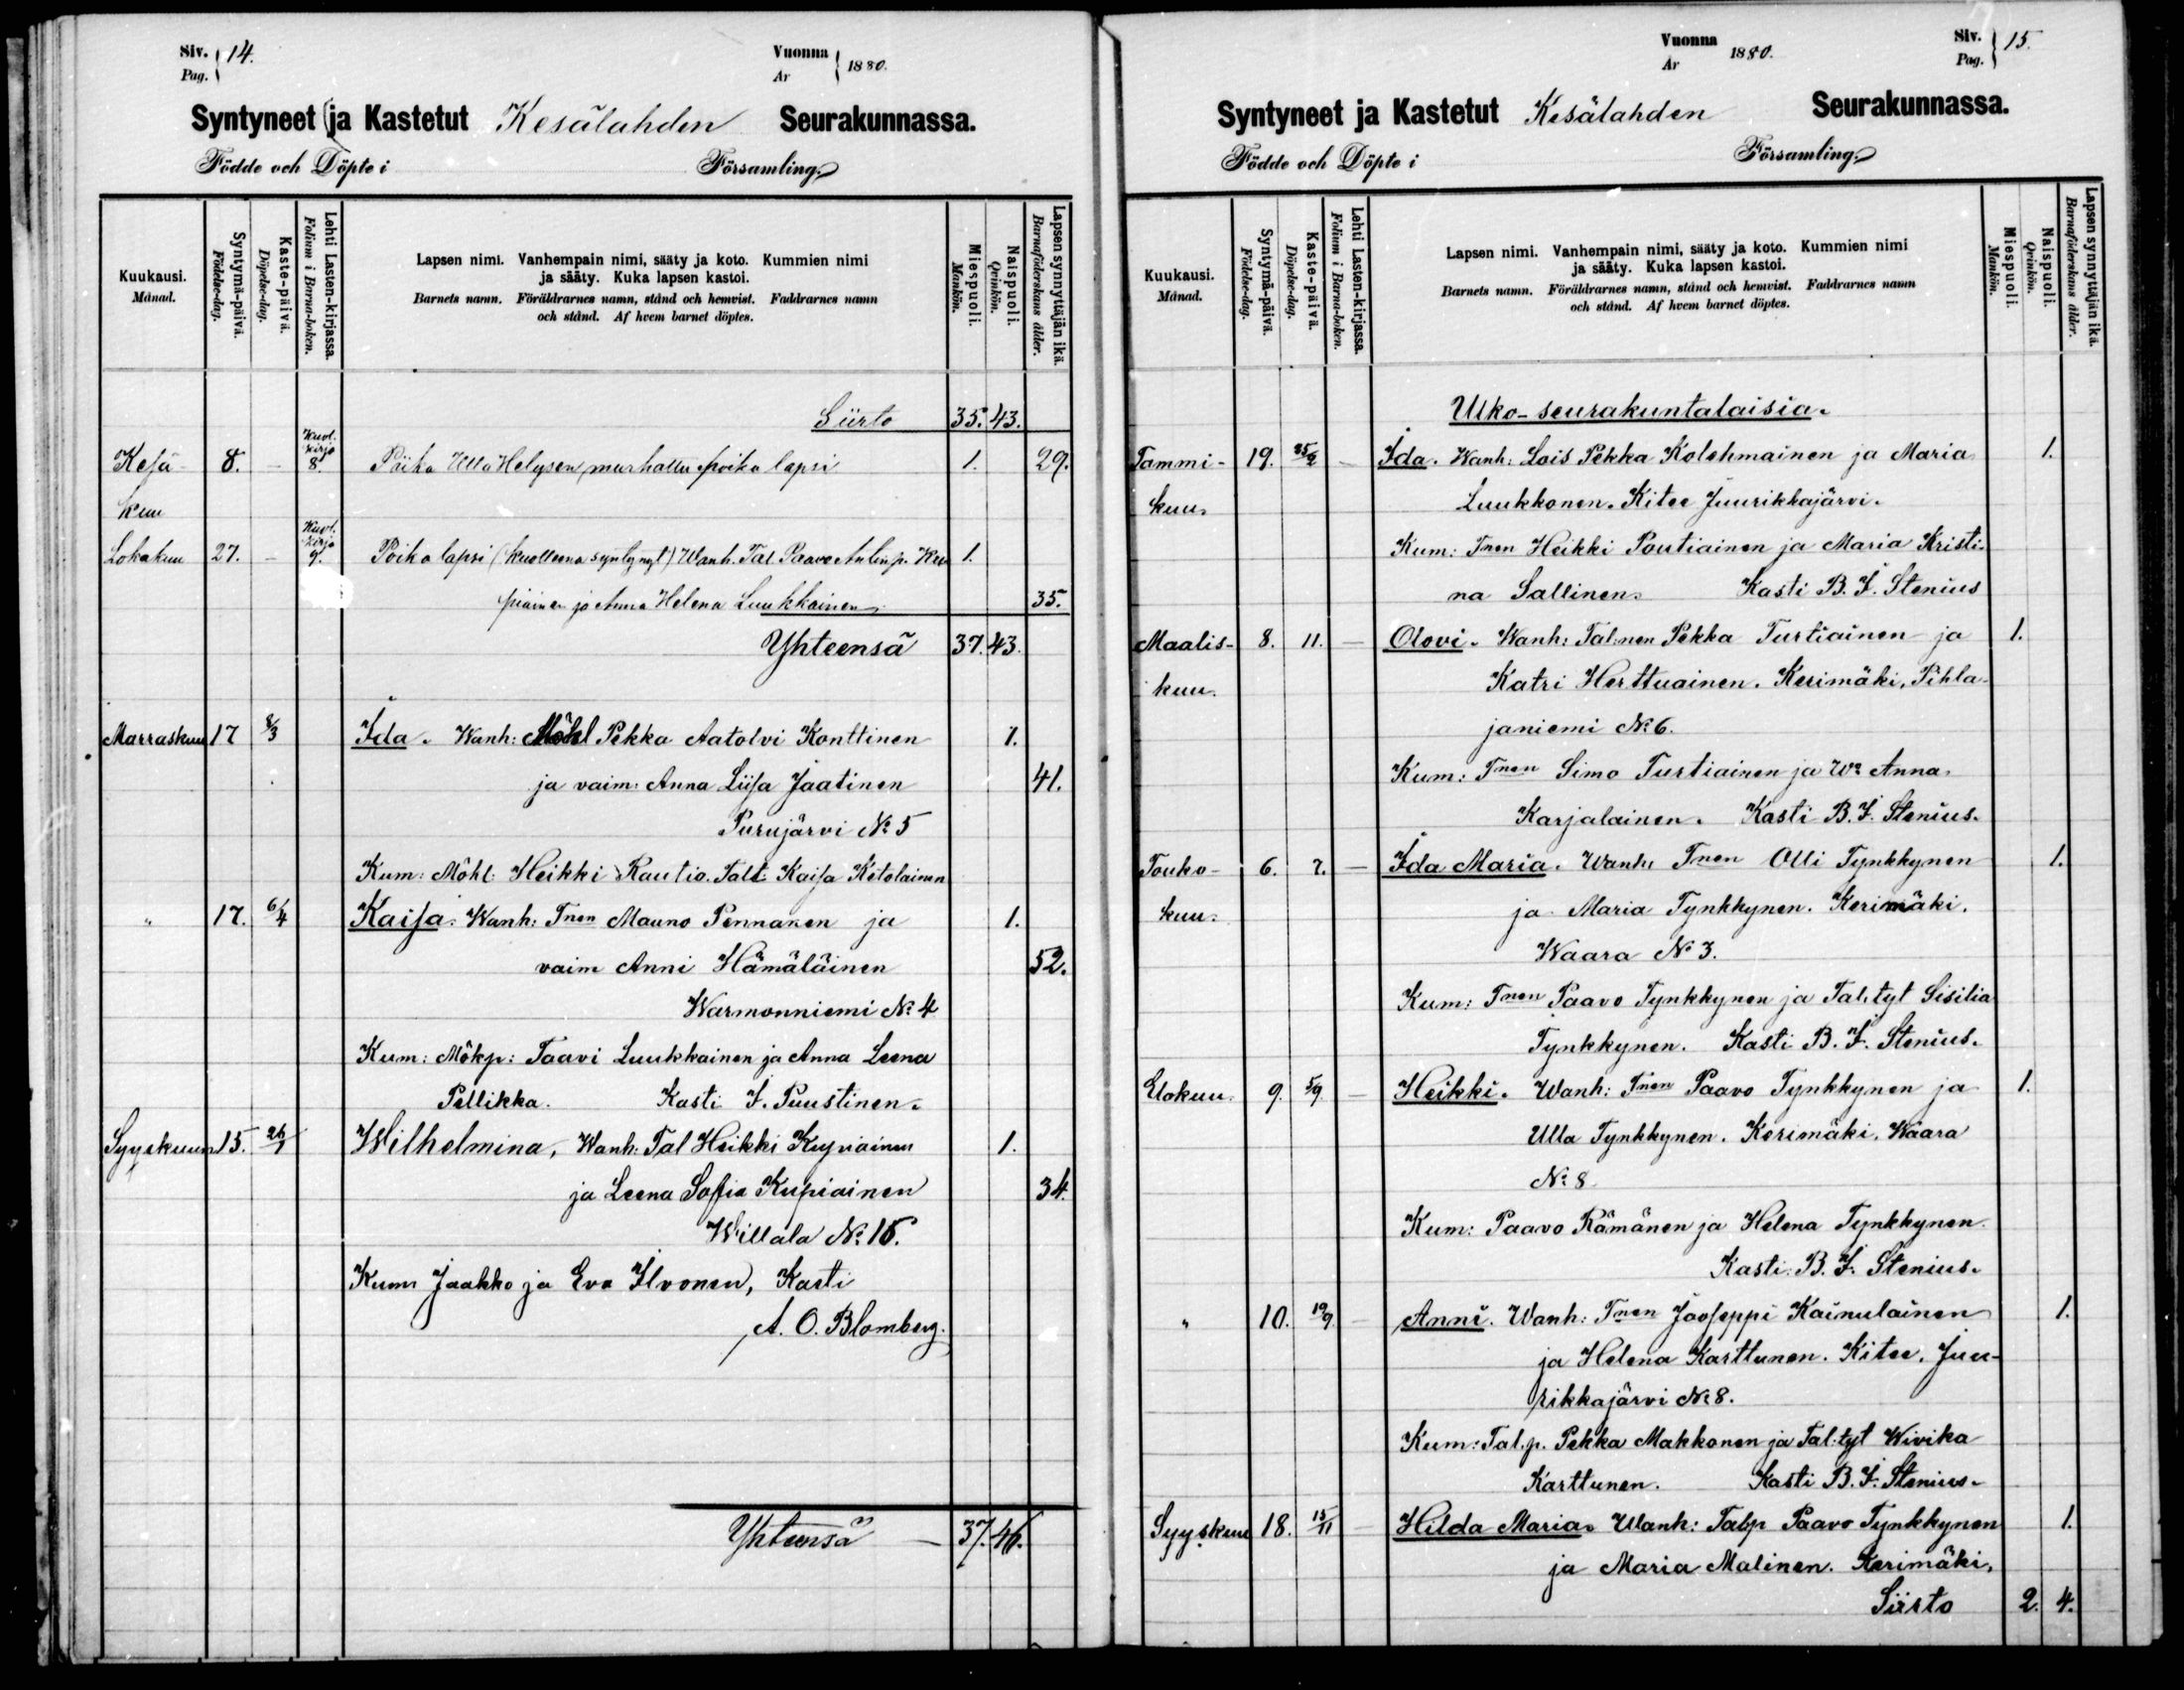 Siv. Pag. 14.
Vuonna År 1880.
Syntyneet ja Kastetut Kesälahden Seurakunnassa.
Födde och Döpte i Församling.
Kuukausi. Månad.
Syntymä-päivä. Födelse-dag.
Kaste-päivä. Döpelse-dag.
Lehti Lasten-kirjassa. Folium i Barna-boken.
Lapsen nimi. Vanhempain nimi, sääty ja koto. Kummien nimi
ja sääty. Kuka lapsen kastoi.
Barnets namn. Föräldrarnes namn, stånd och hemvist. Faddrarnes namn
och stånd. Af hvem barnet döptes.
Miespuoli. Mankön.
Naispuoli. Qvinkön.
Lapsen synnyttäjän ikä. Barnaföderskans ålder.
Siirto 35. 43.
Kesä- 8. – Kuol. kirja 8. Piika Ulla Helysen murhattu poika lapsi 1. 29.
kuu
Lokakuu 27. – Kuol. kirja 9. Poika lapsi (kuolleena syntynyt) Wanh. Tal. Paavo 1.
piainen ja Anna Helena Luukkainen 35.
Yhteensä 37. 43.
Marraskuu 17 8/3 Ida. Wanh: Mökl Pekka Aatolvi Konttinen 1.
ja vaim: Anna Liisa Jaatinen 41.
Purujärvi No 5
Kum: Mökl: Heikki Rautio. Kaisa Ketolainen
" 17. 6/4 Kaisa. Wanh: Tnen Mauno Pennanen ja 1.
vaim Anni Hämäläinen 52.
Warmonniemi No 4
Kum: Mökp: Taavi Luukkainen ja Anna Leena
Pellikka. Kasti I. Puustinen.
Syyskuun 15. 26/1 Wilhelmina, Wanh: Tal Heikki Kupiainen 1.
ja Leena Sofia Kupiainen 34.
Willala No 15.
Kum Jaakko ja Eva Ilvonen, Kasti
A. O. Blomberg.
Yhteensä – 37. 46.
Vuonna År 1880.
Siv. Pag. 15.
Syntyneet ja Kastetut Kesälahden Seurakunnassa.
Födde och Döpte i Församling.
Kuukausi. Månad.
Syntymä-päivä. Födelse-dag.
Kaste-päivä. Döpelse-dag.
Lehti Lasten-kirjassa. Folium i Barna-boken.
Lapsen nimi. Vanhempain nimi, sääty ja koto. Kummien nimi
ja sääty. Kuka lapsen kastoi.
Barnets namn. Föräldrarnes namn, stånd och hemvist. Faddrarnes namn
och stånd. Af hvem barnet döptes.
Miespuoli. Mankön.
Naispuoli. Qvinkön.
Lapsen synnyttäjän ikä. Barnaföderskans ålder.
Ulko-seurakuntalaisia.
Tammi- 19. 25/2 – Ida. Wanh: Lois Pekka Kolehmainen ja Maria 1.
kuu. Luukkonen. Kitee Juurikkajärvi.
Kum: Tnen Heikki Poutiainen ja Maria Kristi-
na Sallinen. Kasti B. F. Stenius
Maalis- 8. 11. – Olovi. Wanh: Tal:nen Pekka Turtiainen ja 1.
kuu. Katri Herttuainen. Kerimäki, Pihla-
janiemi No 6.
Kum: Tnen Simo Turtiainen ja Wa Anna
Karjalainen. Kasti B. F. Stenius.
Touko- 6. 7. – Ida Maria. Wanh: Tnen Olli Tynkkynen 1.
kuu. ja Maria Tynkkynen. Kerimäki.
Waara No 3.
Kum: Tnen Paavo Tynkkynen ja Tal.tyt Sisilia
Tynkkynen. Kasti B. F. Stenius.
Elokuu. 9. 5/9 – Heikki. Wanh: Tnen Paavo Tynkkynen ja 1.
Ulla Tynkkynen. Kerimäki, Waara
No 8
Kum: Paavo Rämänen ja Helena Tynkkynen.
Kasti: B. F. Stenius.
" 10. 19/9 – Anni. Wanh: Tnen Jooseppi Kainulainen 1.
ja Helena Karttunen. Kitee, Juu-
rikkajärvi No 8.
Kum: Tal.p. Pekka Makkonen ja Tal:tyt Wivika
Karttunen. Kasti B. F. Stenius.
Syyskuu 18. 15/11 – Hilda Maria. Wanh: Talp Paavo Tynkkynen 1.
ja Maria Malinen. Kerimäki,
Siirto 2. 4.